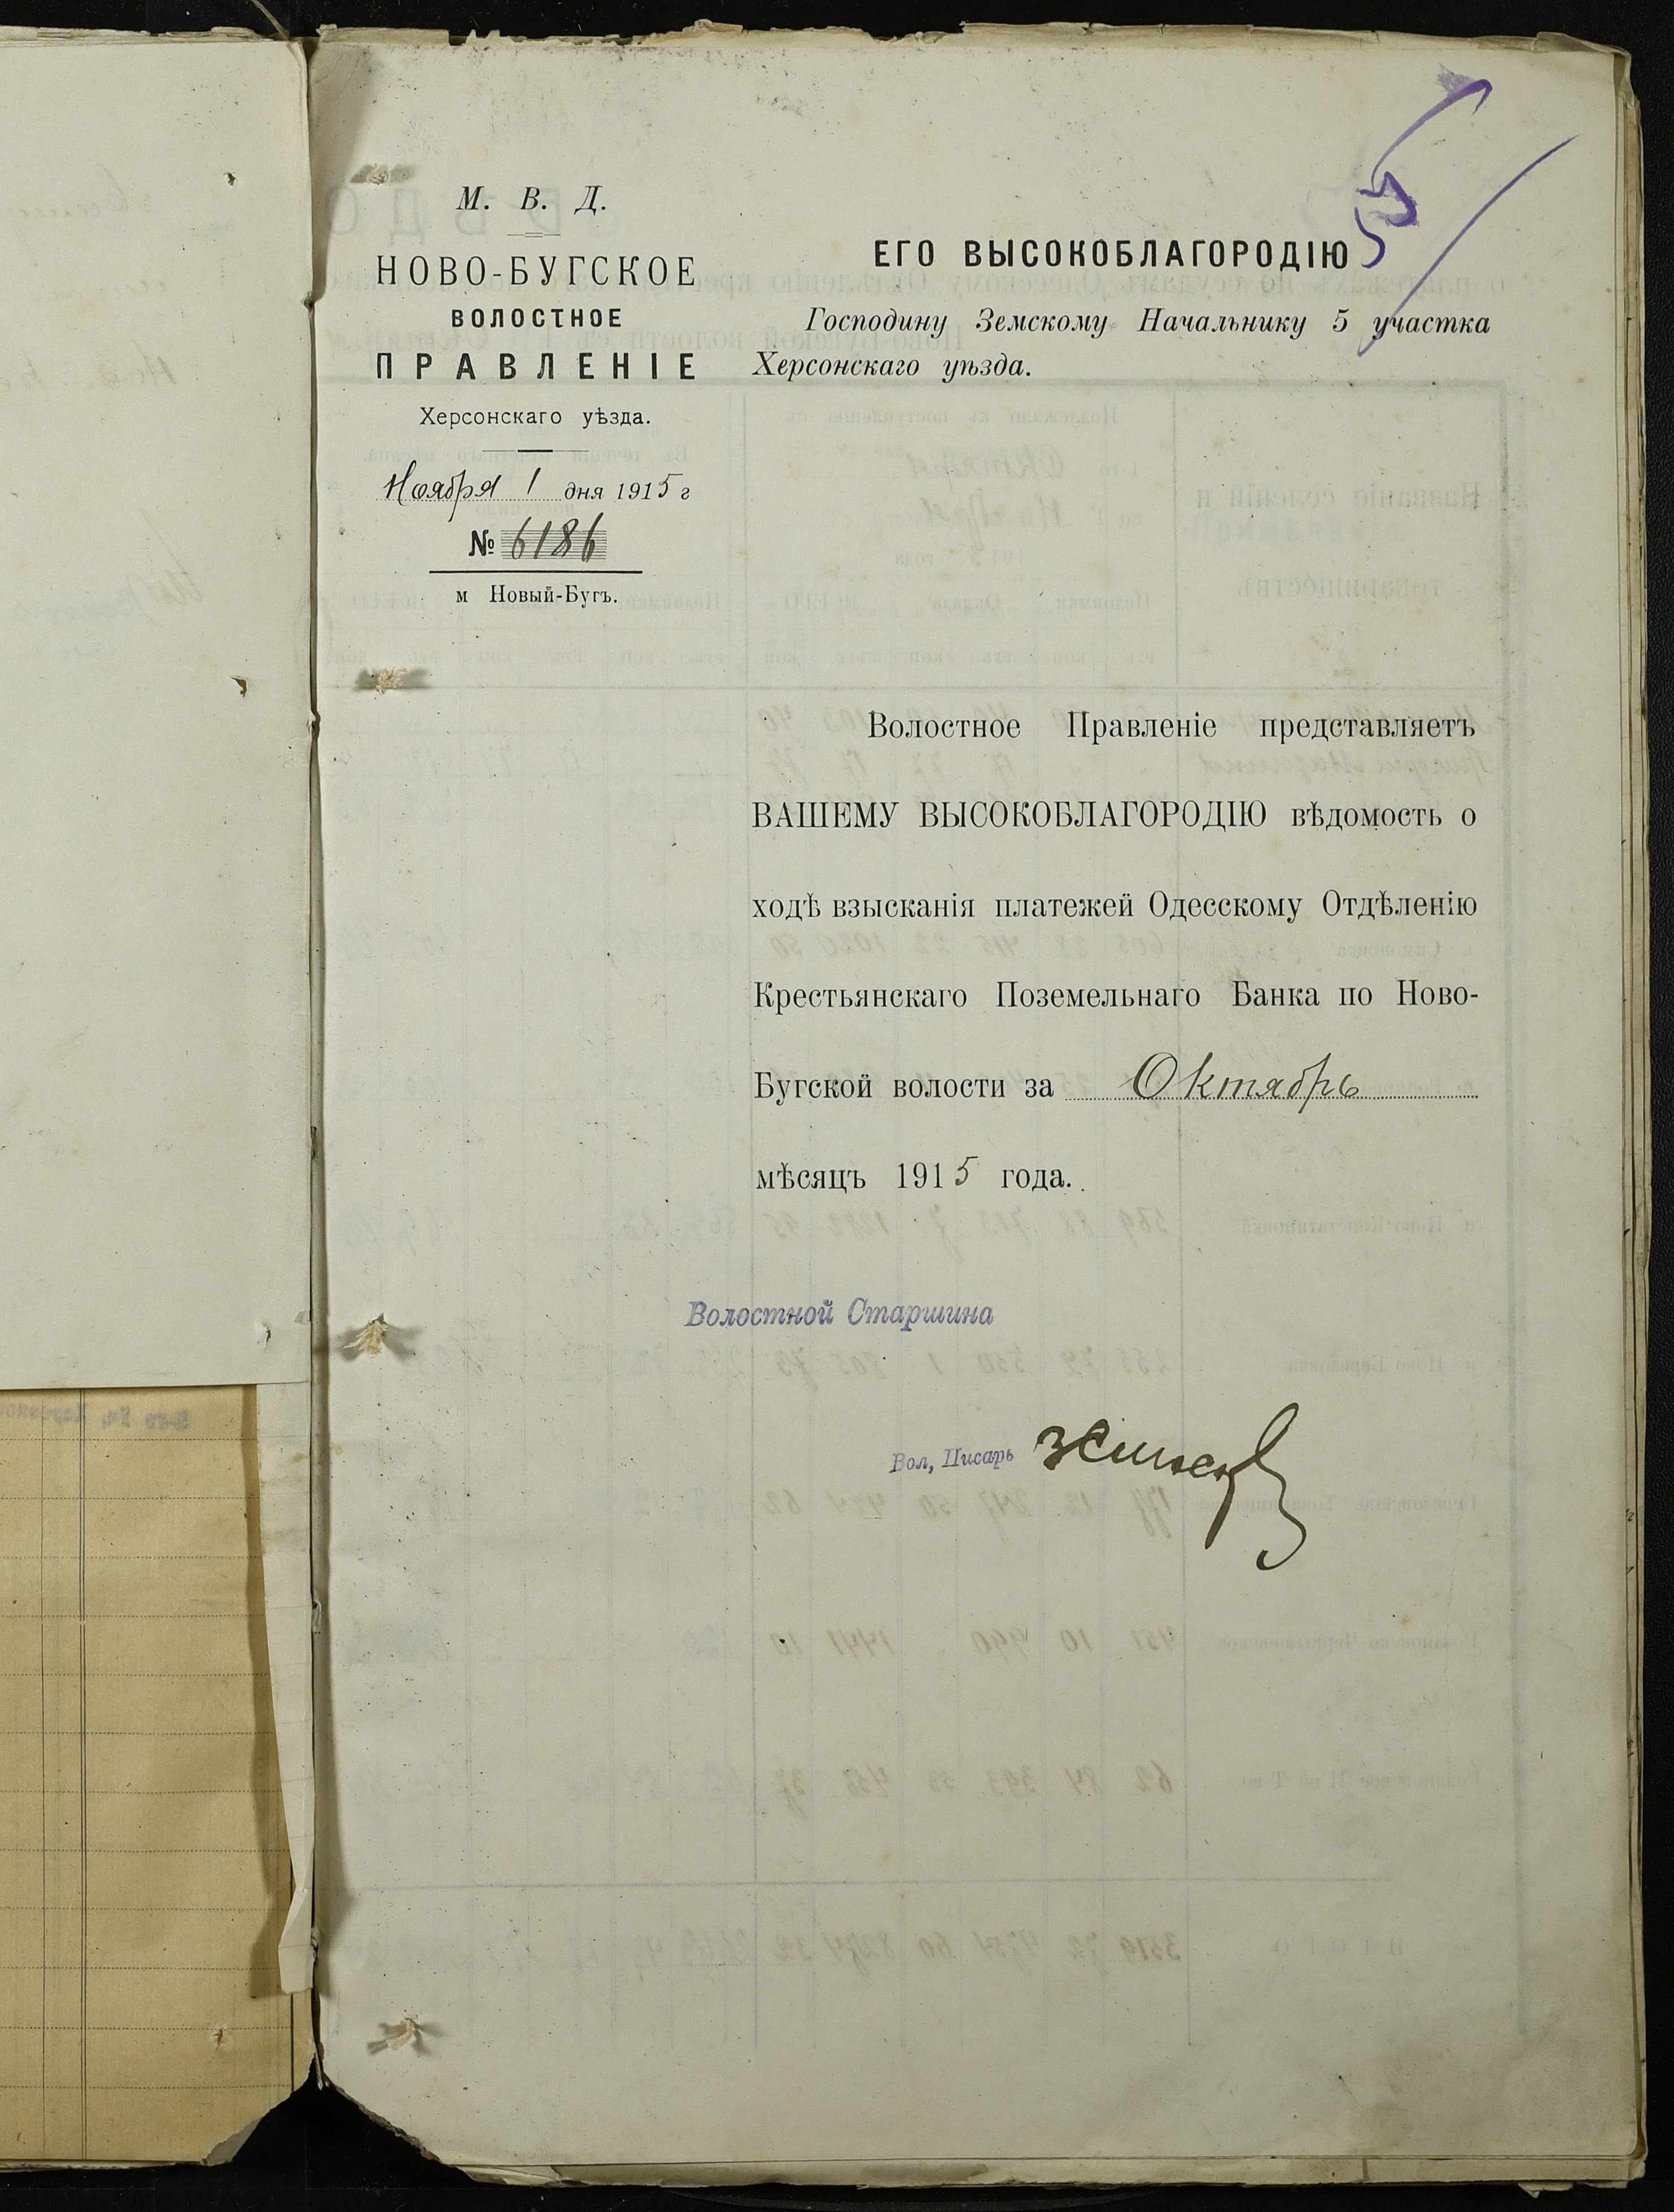 М. В. Д.
НОВО-БУГСКОЕ
ВОЛОСТНОЕ
ПРАВЛЕНІЕ
Херсонскаго уѣзда.
Ноября 1 дня 1915 г
№ 6186
м Новый-Бугъ.
ЕГО ВЫСОКОБЛАГОРОДІЮ
Господину Земскому Начальнику 5 участка
Херсонскаго уѣзда.
Волостное Правленіе представляетъ
ВАШЕМУ ВЫСОКОБЛАГОРОДІЮ вѣдомость о
ходѣ взысканія платежей Одесскому Отдѣленію
Крестьянскаго Поземельнаго Банка по Ново-
Бугской волости за Октябрь
мѣсяцъ 1915 года.
Волостной Старшина
Вол, Писарь